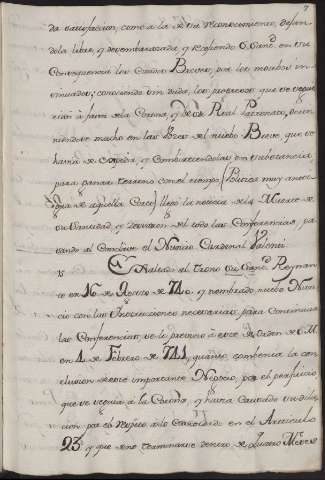 7
da satisfaccion, como à la devida reconocimiento, desan-
dola libre, y desembarazada, y rexpidiendo S. Santd. en su
Consequencia los Quatro Breves, por los motivos in-
sinuados; conociendo sin duda, los progresos que se segui-
rian à favor de la Corona, y de su Real Patronato, deter-
niendose mucho en las                     del nuevo Breve que se
havia de expedir, y combatiendolas en substancia
para ganar terreno con el tiempo, (Politica muy anexa
                 de aquella Corte) llegò la noticia de la Muerte de
su Santidad, y cesaron del todo las Conferencias, pa-
sando al Conclave el Nuncio Cardenal Valenti
15
Exaltado al trono su Santd. Reynan-
te en 16 de Agosto de 740, y nombrado nuevo Nun-
cio con las Instrucciones necesarias para continuar
las Conferencias, se le previno à este de orden de S.M.
en 4 de Febrero de 741, quanto combenia la con-
clusion de este importante Negocio, por el perjuicio
que se seguia à la Corona, y havia causado su dila-
cion, por lo respectivo à lo Concordado en el Articulo
23, y que no terminarse dentro de quatro Meses